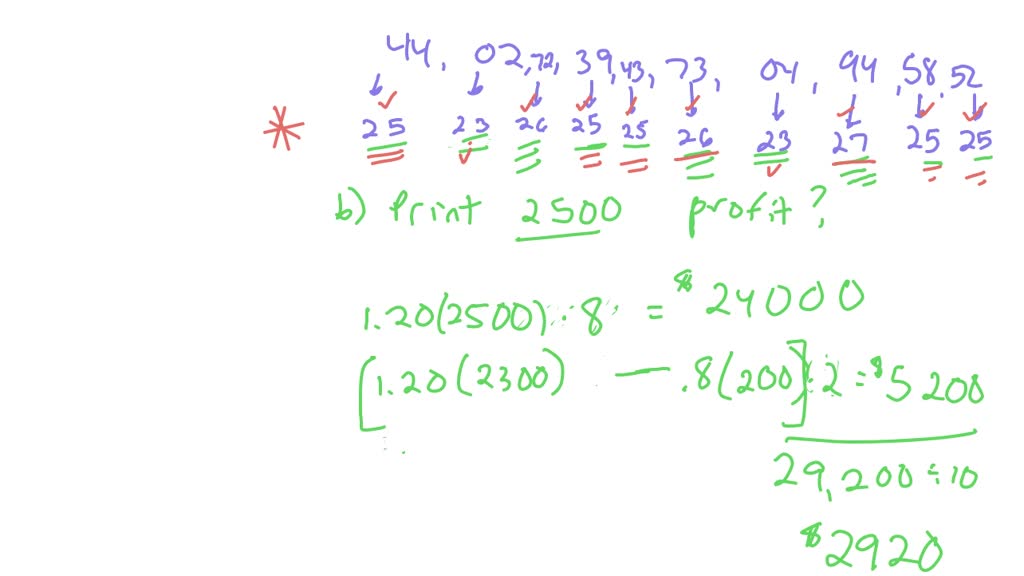 44, 02, 72, 39, 43, 73, 04, 94, 58, 52
25 23 26 25 25 26 23 27 25 25
b) Print 2500 profit?
1.20(2500) · 8 = $24000
[1.20(2300) — .8(200)] · 2 = $5200
29,200 ÷ 10
$2920